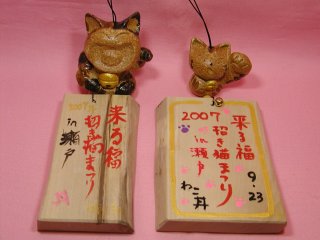 来る福
2007年
招き猫まつり
in 瀬戸
来る福
9.23
2007
招き猫まつり
in 瀬戸